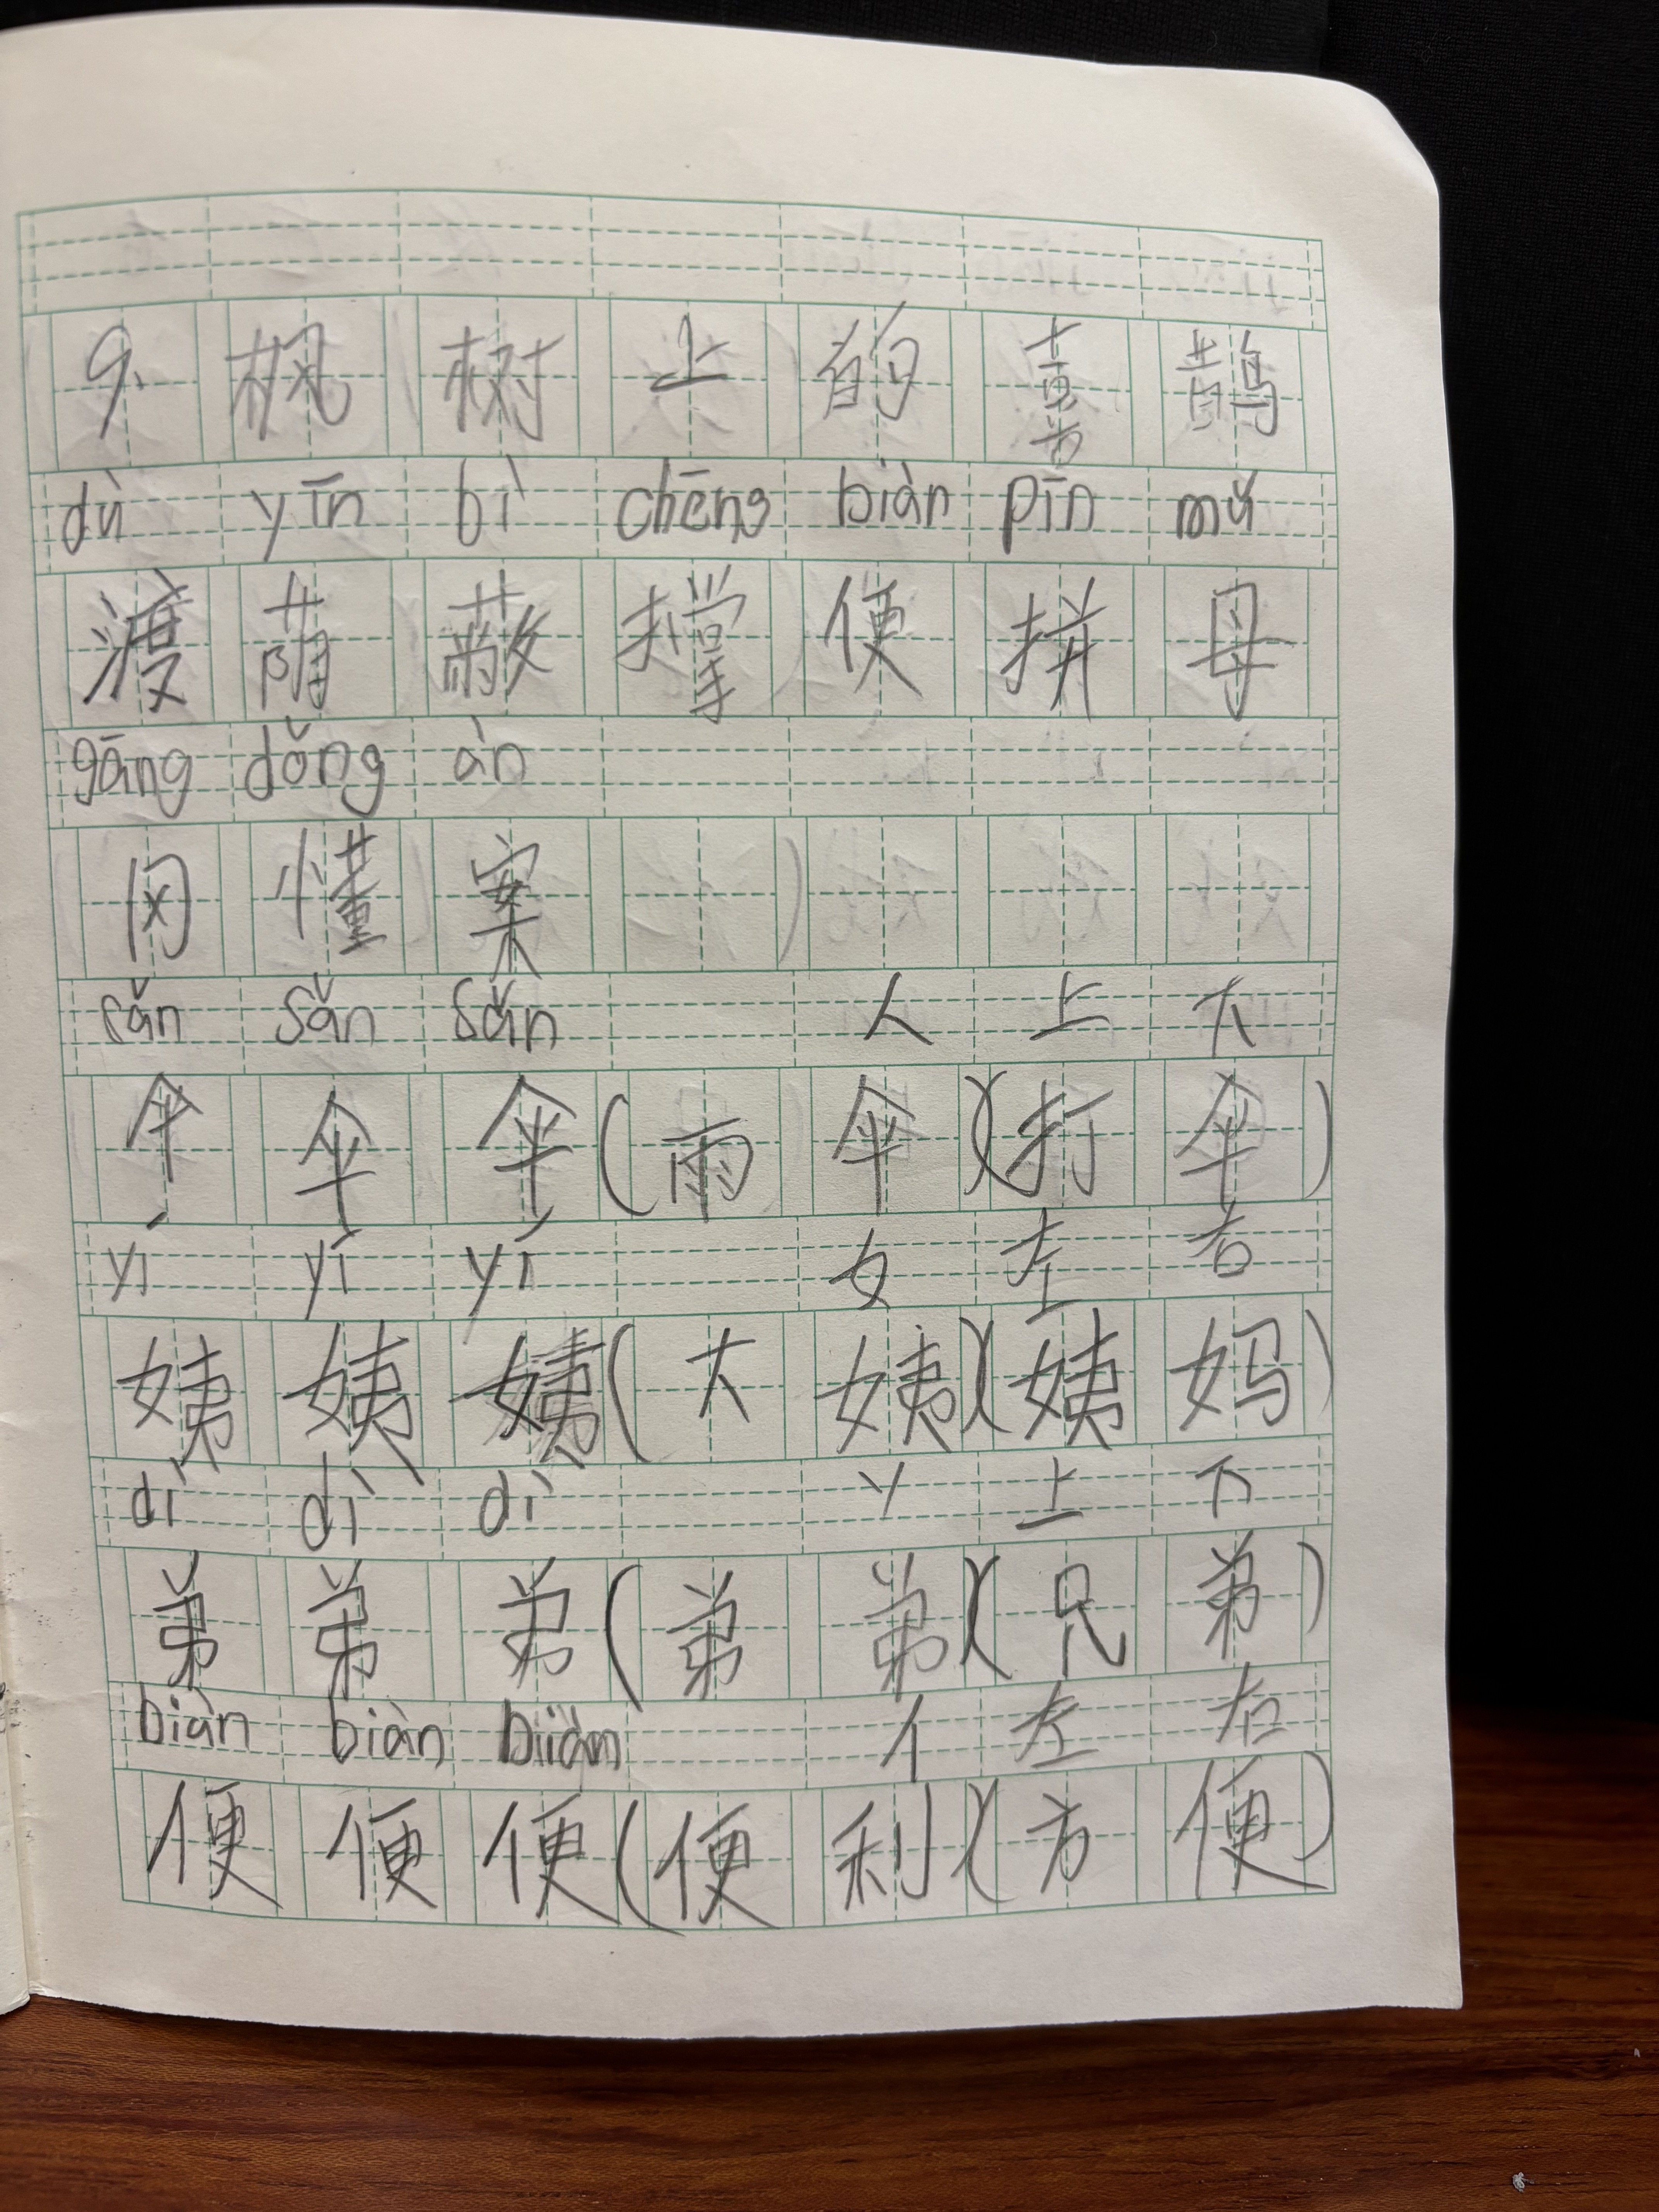 9. 枫树上的喜鹊
dù yīn bì chēng biàn pīn mǔ
渡荫蔽撑便拼母
gāng dǒng àn
冈懂案
sǎn sǎn sǎn 人 上 下
伞伞伞(雨伞)(打伞)
yí yí yí 女 左 右
姨姨姨(大姨)(姨妈)
dì dì dì 丷 上 下
弟弟弟(弟弟)(兄弟)
biàn biàn biàn 亻 左 右
便便便(便利)(方便)